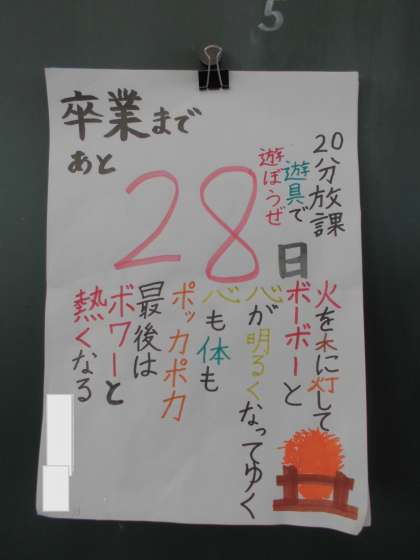 5
卒業まで
あと
28日
20分放課
遊具で
遊ぼうぜ
火を木に灯して
ボーボーと
心が明るくなってゆく
心も体も
ポッカポカ
最後は
ボワーと
熱くなる